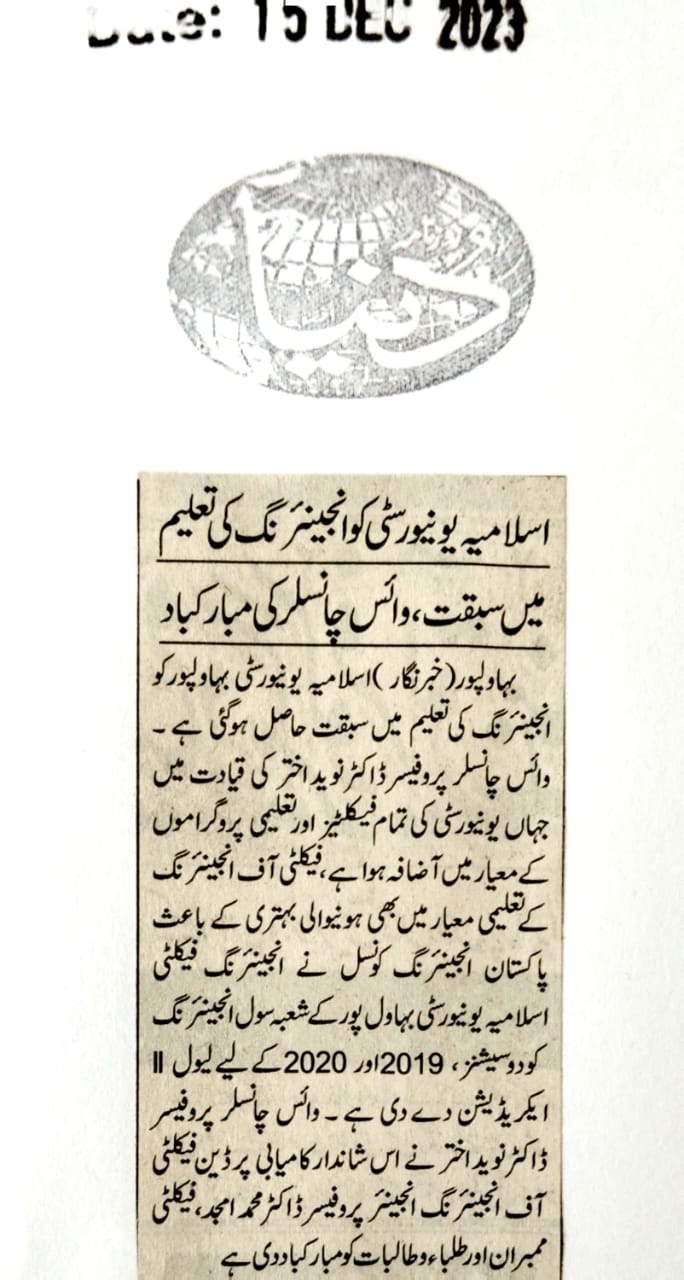 Date: 15 DEC 2023
روزنامہ
دُنیا
اسلامیہ یونیورسٹی کو انجینئرنگ کی تعلیم
میں سبقت، وائس چانسلر کی مبارکباد
بہاولپور (خبر نگار) اسلامیہ یونیورسٹی بہاولپور کو
انجینئرنگ کی تعلیم میں سبقت حاصل ہوگئی ہے ۔
وائس چانسلر پروفیسر ڈاکٹر نوید اختر کی قیادت میں
جہاں یونیورسٹی کی تمام فیکلٹیز اور تعلیمی پروگراموں
کے معیار میں آضافہ ہوا ہے، فیکلٹی آف انجینئرنگ
کے تعلیمی معیار میں بھی ہونیوالی بہتری کے باعث
پاکستان انجینئرنگ کونسل نے انجینئرنگ فیکلٹی
اسلامیہ یونیورسٹی بہاول پور کے شعبہ سول انجینئرنگ
کو دو سیشنز ، 2019 اور 2020 کے لیے لیول II
ایکریڈیشن دے دی ہے ۔ وائس چانسلر پروفیسر
ڈاکٹر نوید اختر نے اس شاندار کامیابی پر ڈین فیکلٹی
آف انجینئرنگ انجینئر پروفیسر ڈاکٹر محمد امجد، فیکلٹی
ممبران اور طلباء و طالبات کو مبارکباد دی ہے